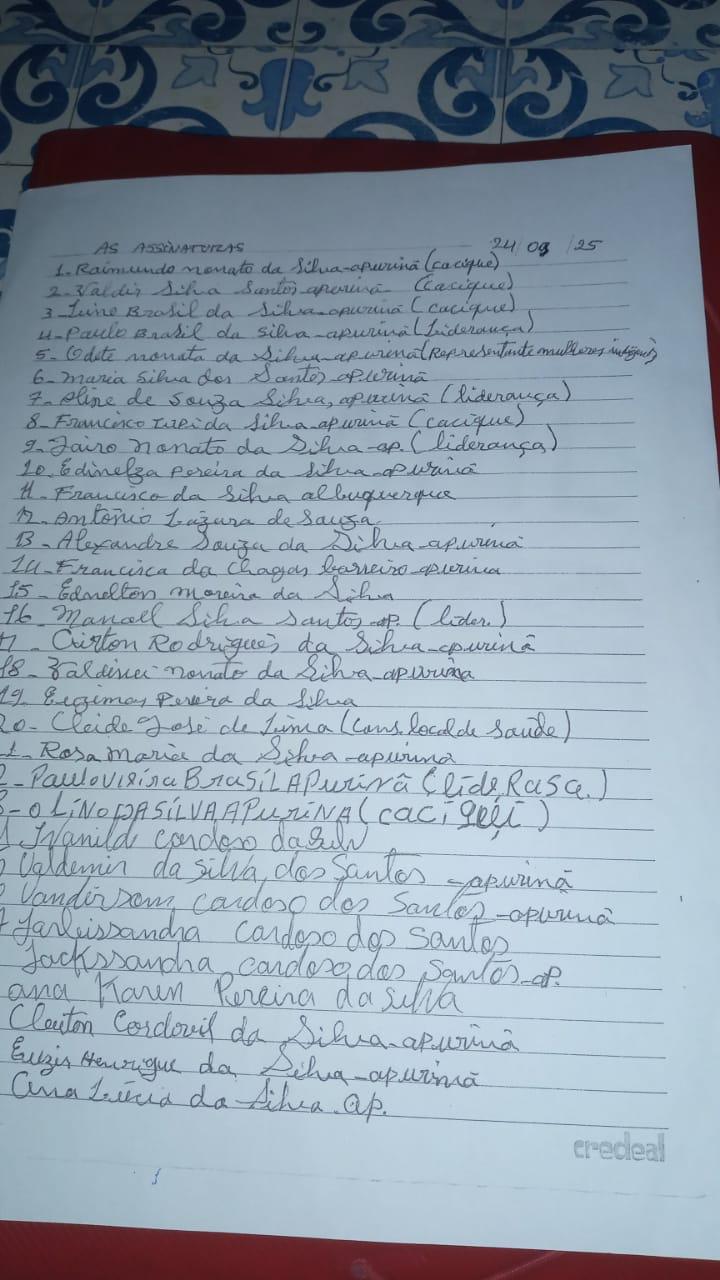 AS ASSINATURAS 24/09/25
1. Raimundo nonato da Silva-apurinã (cacique)
2. Valdir Silva Santos apurinã (cacique)
3 - Brasil da Silva-apurinã (cacique)
4 - Paulo Brasil da silva-apurinã (Liderança)
5 - Odete nonata da Silva-apurinã (Representante mulheres indígenas)
6 - maria Silva dos Santos apurinã
7 - Aline de Souza Silva, apurinã (liderança)
8 - Francisco da Silva apurinã (cacique)
9 - Jairo nonato da Silva-ap. (liderança)
10. Edinelza pereira da silva-apurinã
11 - Francisco da Silva albuquerque
12 - Antônio de Souza
13 - Alexandre Souza da Silva-apurinã
14 - Francisca da chagas barreiro-apurinã
15 - Ednelton moreira da Silva
16 - Manoel Silva Santos-ap. (lider.)
17 - Airton Rodrigues da Silva-apurinã
18 - Valdinei nonato da Silva-apurinã
19 - Pereira da Silva
20 - Cleide José de Lima (Cons. local de saúde)
1 - Rosa maria da Silva-apurinã
2 - PAULO BRASIL APurinã
3 - OLINO DA SILVA APURINA
cardoso da
Valdemir da silva dos Santos -apurinã
cardoso dos Santos -apurinã
cardoso dos santos
cardoso dos Santos-ap.
ana Karen Pereira da silva
Cleuton Cordovil da Silva-apurinã
Henrique da Silva-apurinã
Ana Lúcia da Silva. ap.
credeal